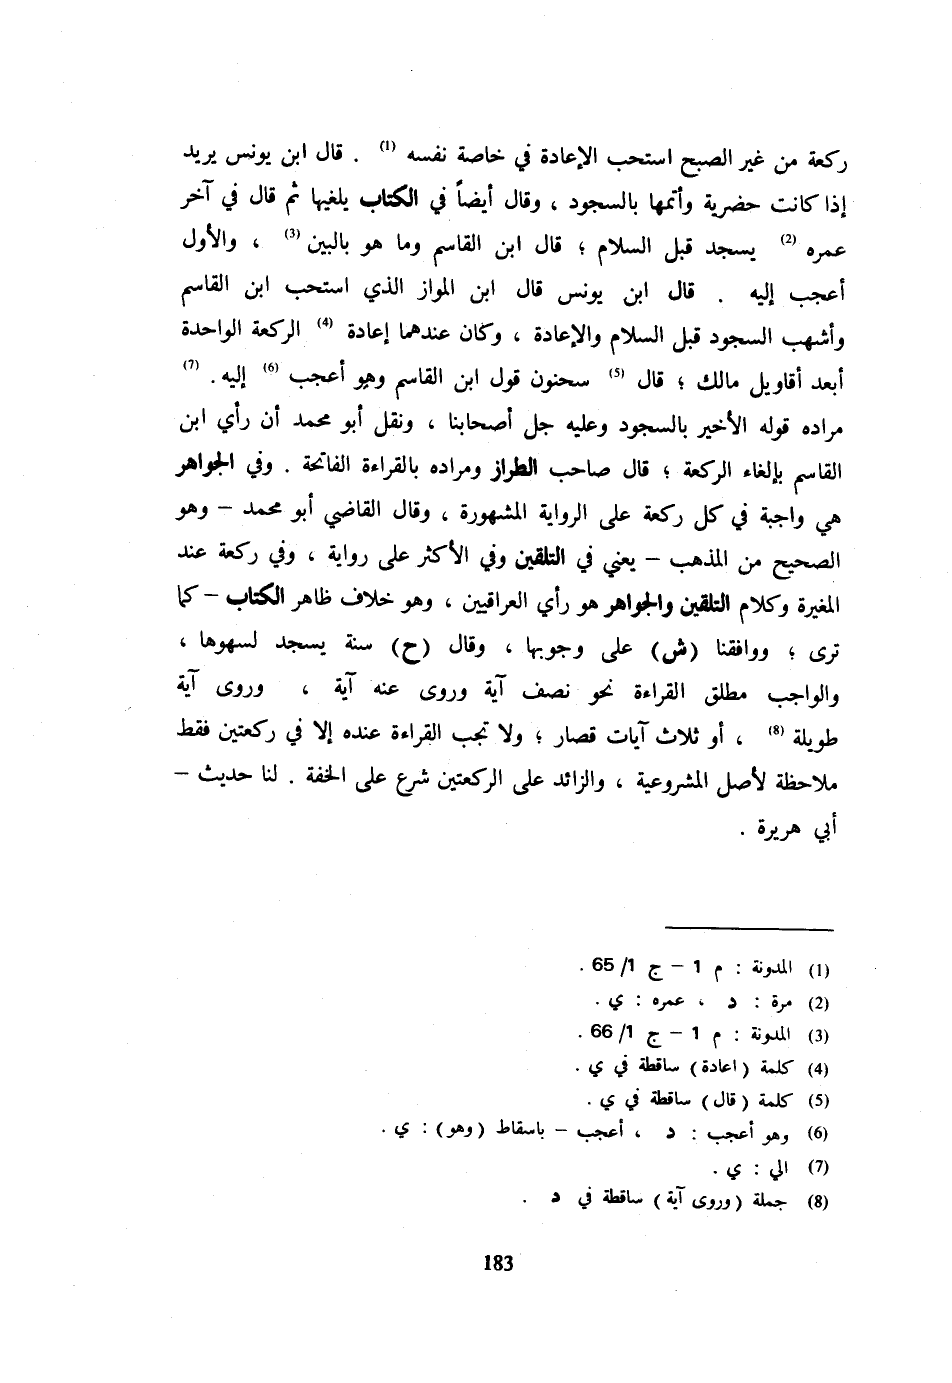 ركعة من غير الصبح استحب الإعادة في خاصة نفسه (1) . قال ابن يونس يريد
إذا كانت حضرية وأتمها بالسجود ، وقال أيضاً في الكتاب يلغيها ثم قال في آخر
عمره (2) يسجد قبل السلام ؛ قال ابن القاسم وما هو بالبين (3) ، والأول
أعجب إليه . قال ابن يونس قال ابن المواز الذي استحب ابن القاسم
وأشهب السجود قبل السلام والإعادة ، وكان عندهما إعادة (4) الركعة الواحدة
أبعد أقاويل مالك ؛ قال (5) سحنون قول ابن القاسم وهو أعجب (6) إليه . (7)
مراده قوله الأخير بالسجود وعليه جل أصحابنا ، ونقل أبو محمد أن رأي ابن
القاسم بإلغاء الركعة ؛ قال صاحب الطراز ومراده بالقراءة الفاتحة . وفي الجواهر
هي واجبة في كل ركعة على الرواية المشهورة ، وقال القاضي أبو محمد – وهو
الصحيح من المذهب – يعني في التلقين وفي الأكثر على رواية ، وفي ركعة عند
المغيرة وكلام التلقين والجواهر هو رأي العراقيين ، وهو خلاف ظاهر الكتاب – كما
ترى ؛ ووافقنا (ش) على وجوبها ، وقال (ح) سنة يسجد لسهوها ،
والواجب مطلق القراءة نحو نصف آية وروى عنه آية ، وروى آية
طويلة (8) ، أو ثلاث آيات قصار ؛ ولا تجب القراءة عنده إلا في ركعتين فقط
ملاحظة لأصل المشروعية ، والزائد على الركعتين شرع على الخفة . لنا حديث –
أبي هريرة .
(1) المدونة : م 1 – ج 1/ 65 .
(2) مرة : د ، عمره : ي .
(3) المدونة : م 1 – ج 1/ 66 .
(4) كلمة (اعادة) ساقطة في ي .
(5) كلمة (قال) ساقطة في ي .
(6) وهو أعجب : د ، أعجب – باسقاط (وهو) : ي .
(7) الي : ي .
(8) جملة (وروى آية) ساقطة في د .
183